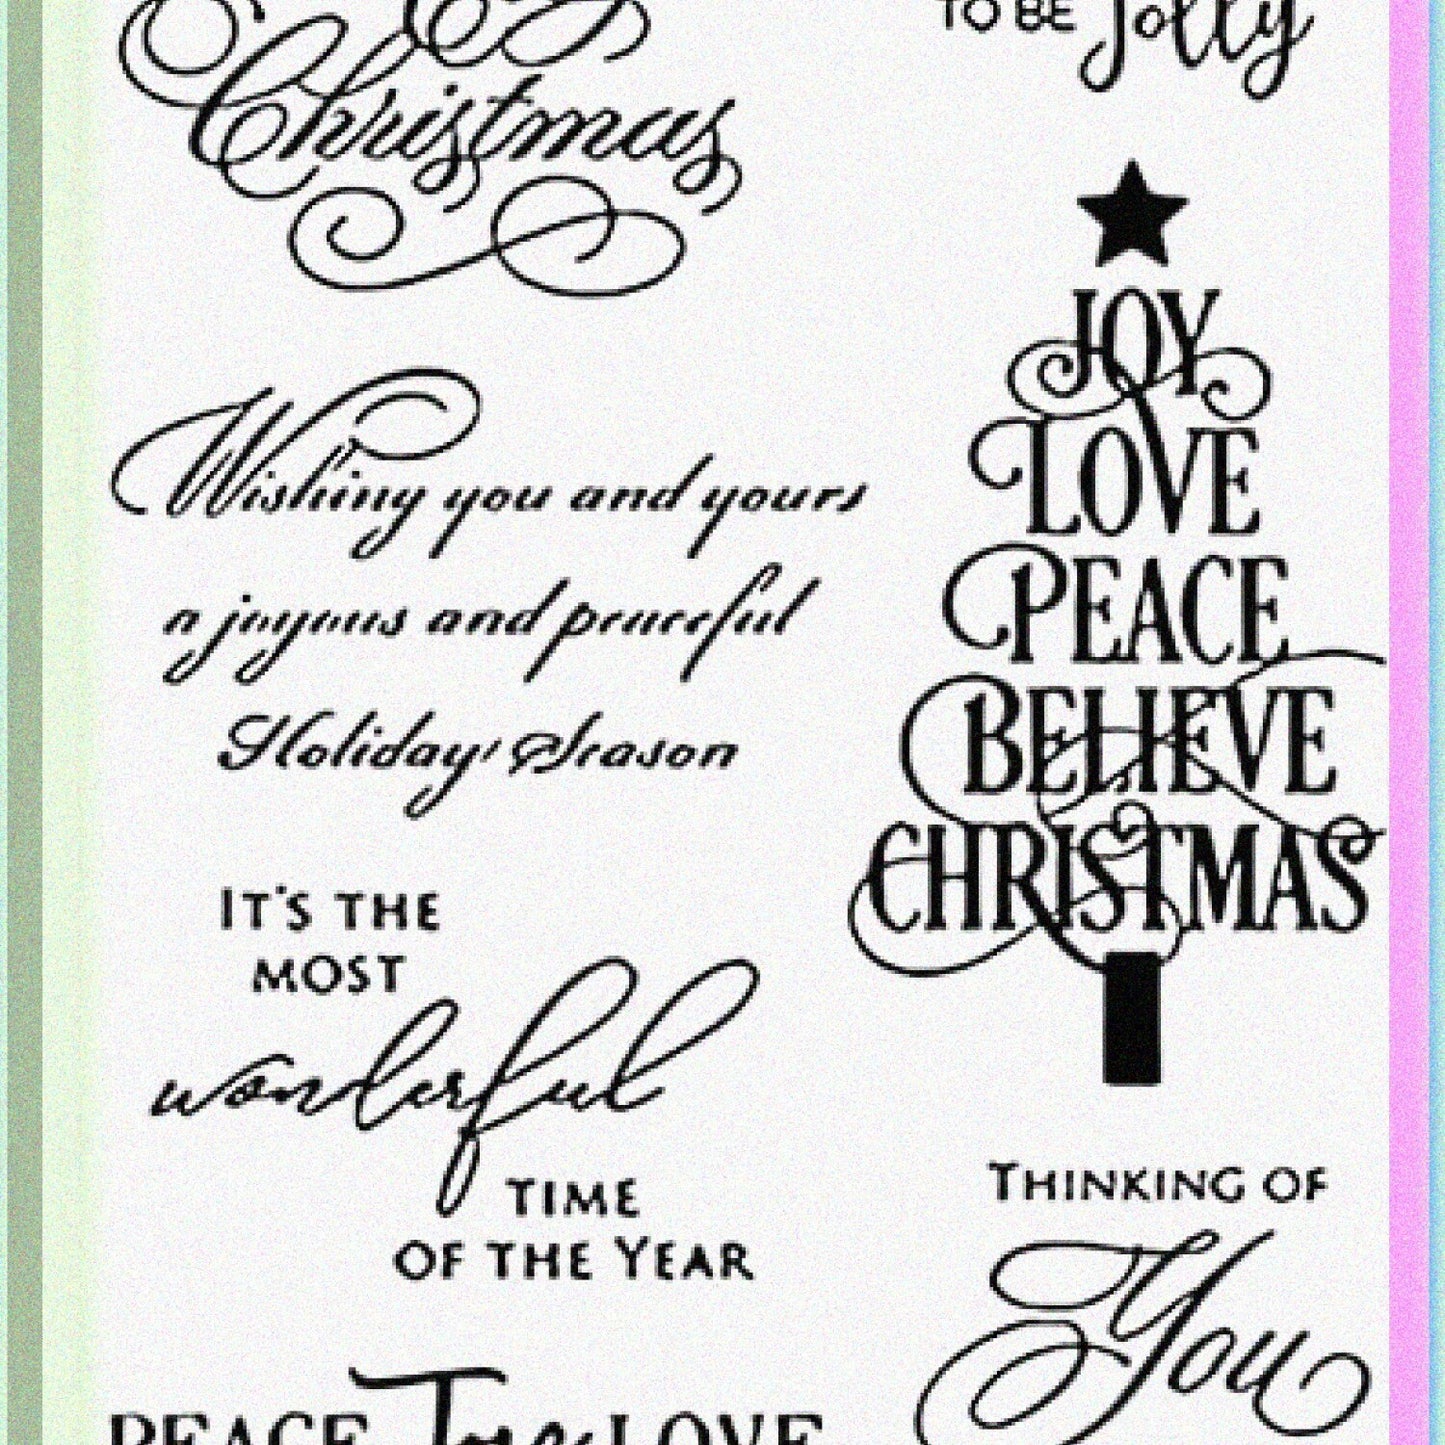 Christmas
TO BE Jolly
Wishing you and yours
a joyous and peaceful
Holiday Season
JOY
LOVE
PEACE
BELIEVE
CHRISTMAS
IT'S THE
MOST
wonderful
TIME
OF THE YEAR
THINKING OF
You
PEACE Joy LOVE